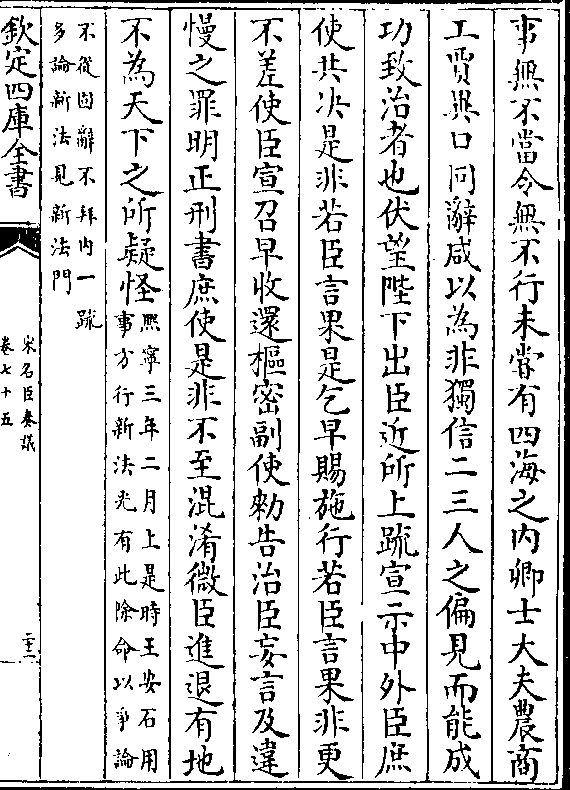 事無不當令無不行未嘗有四海之内卿士大夫農商
工賈異口同辭咸以為非獨信二三人之偏見而能成
功致治者也伏望陛下出臣近所上疏宣示中外臣庶
使共决是非若臣言果是乞早賜施行若臣言果非更
不差使臣宣召早收還樞密副使勑告治臣妄言及違
慢之罪明正刑書庶使是非不至混淆微臣進退有地
不為天下之所疑怪熙寧三年二月上是時王安石用
事方行新法光有此除命以爭論
不從固辭不拜内一疏
多論新法見新法門
欽定四庫全書
宋名臣奏議
卷七十五
二十三